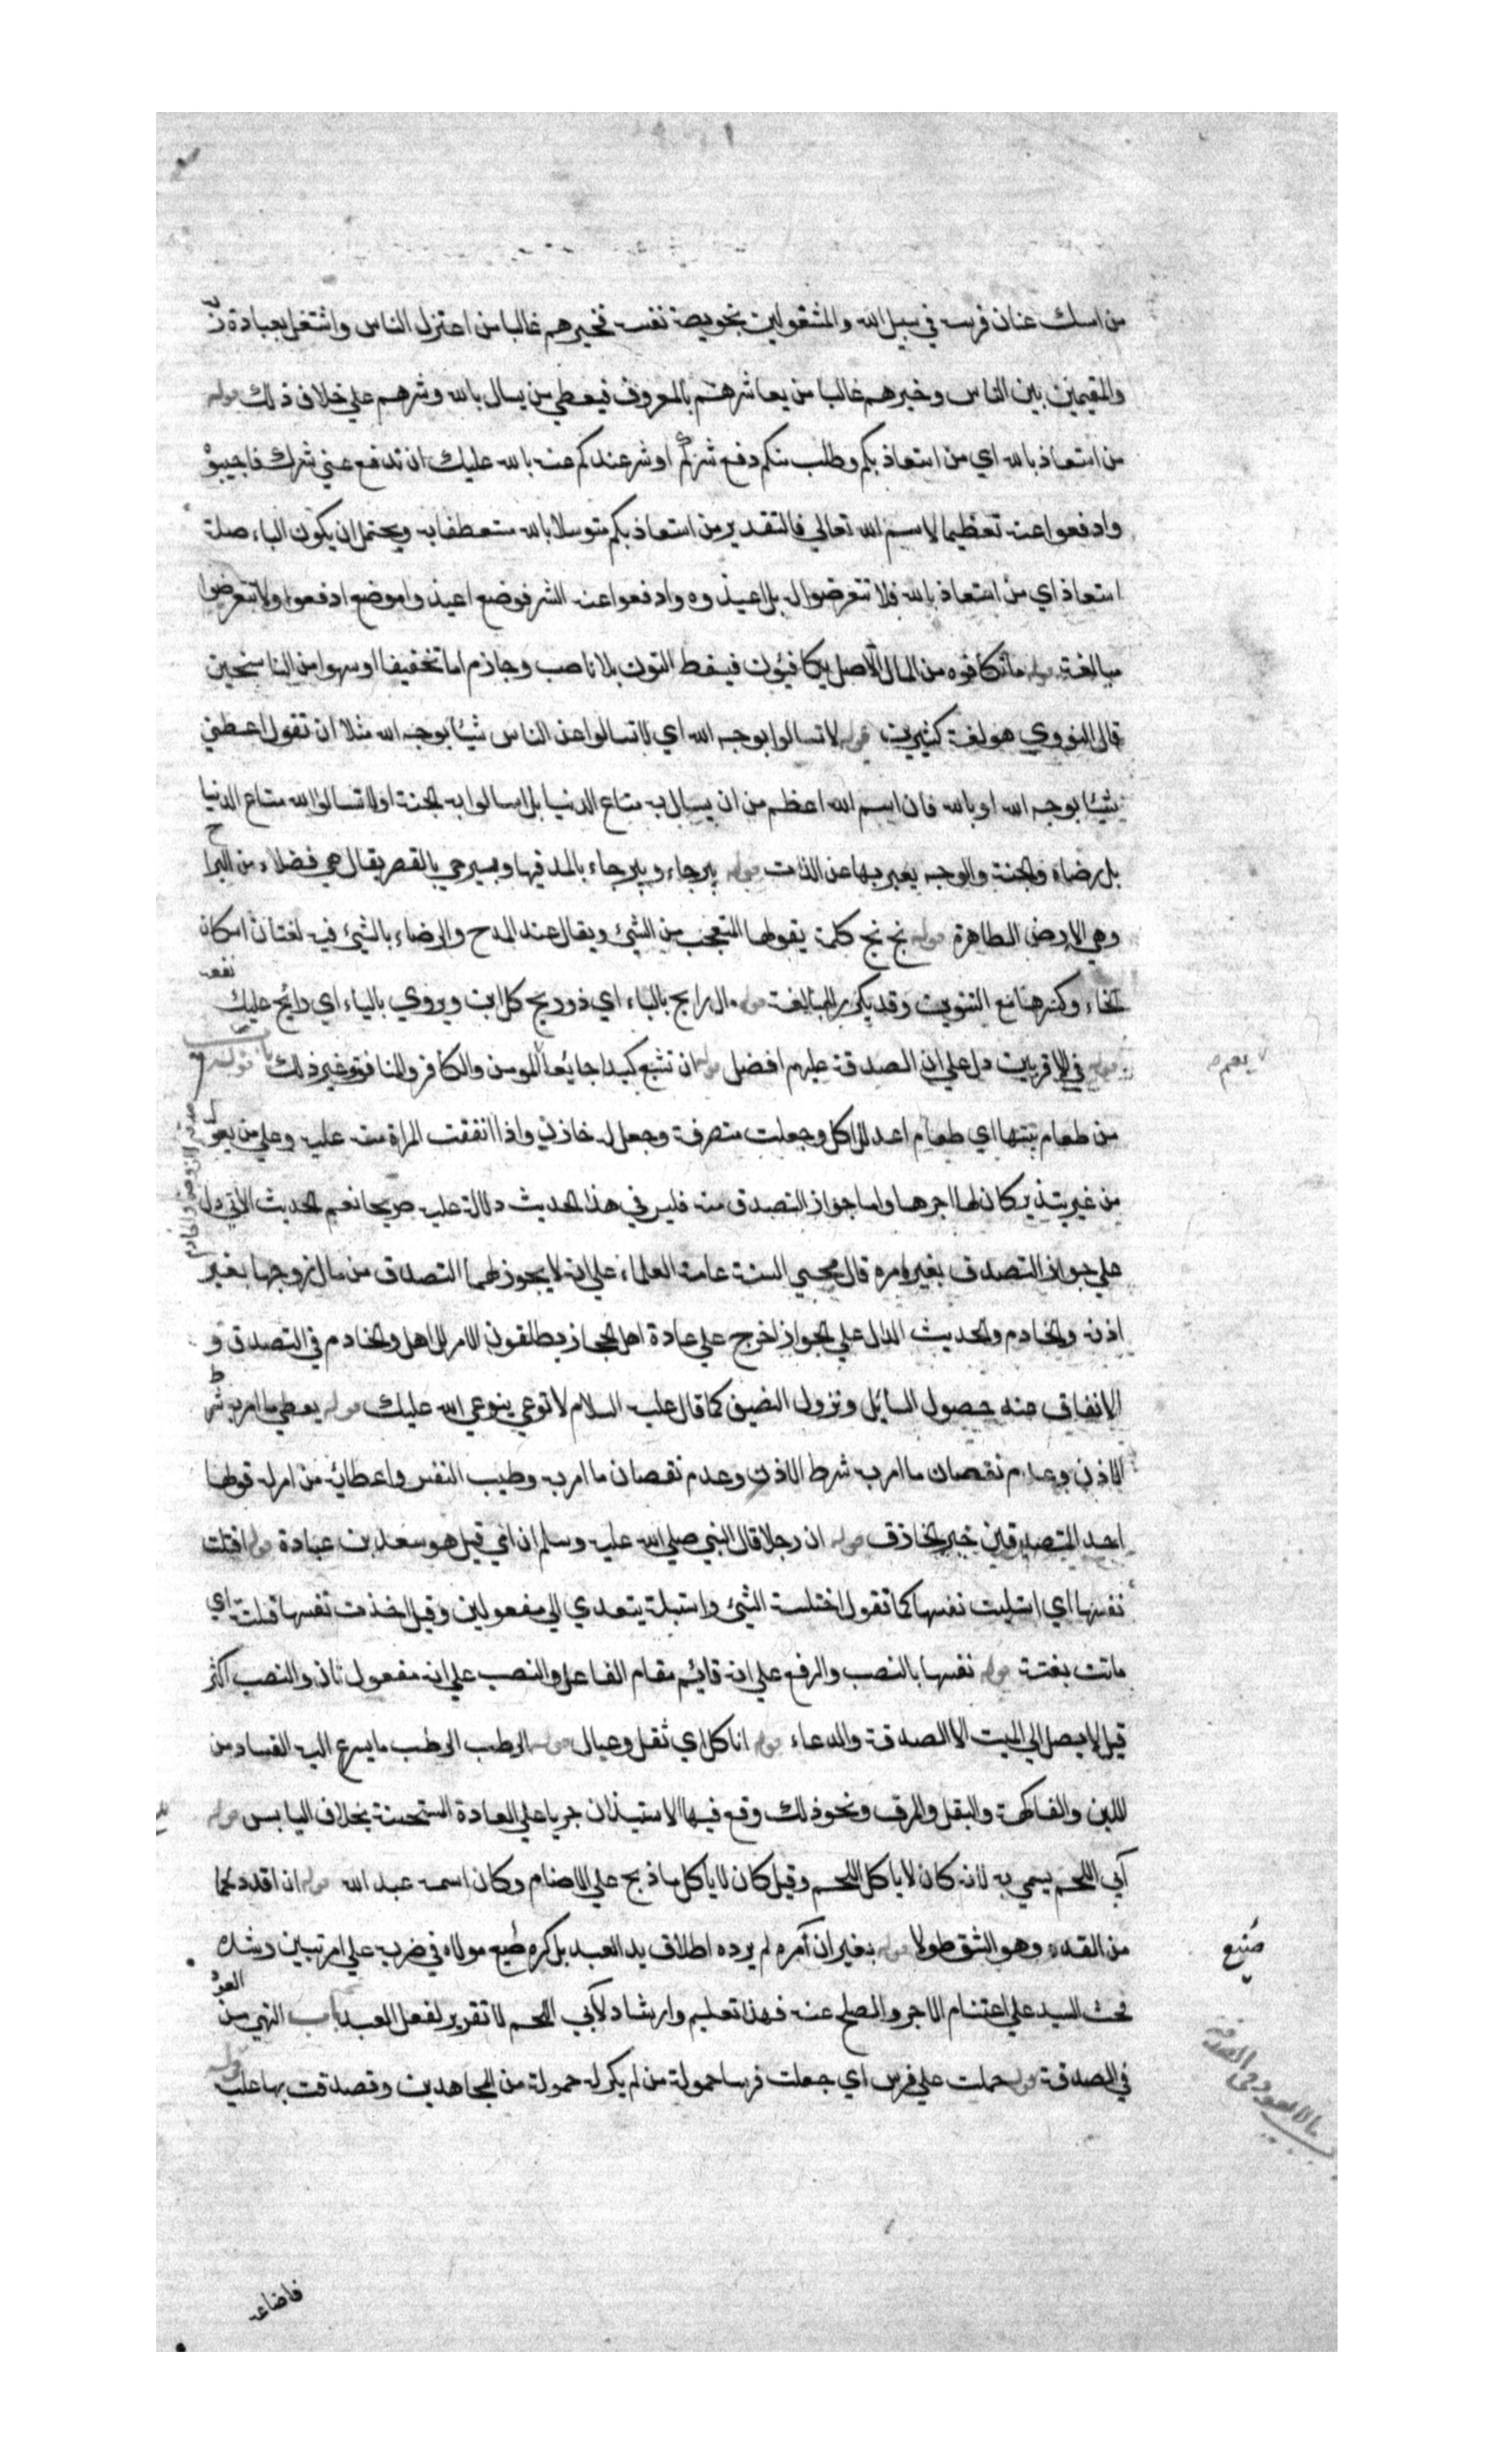 من امسك عنان فرسه في سبيل الله والمشغولين بخويصة نفسه فخيرهم غالبا من اعتزل الناس واشتغل بعبادة
والمقيمين بين الناس وخيرهم غالبا من يعاشرهم بالمعروف فيعطي من يسال بالله وشرهم علي خلاف ذلك قوله
من استعاذ بالله اي من استعاذ بكم وطلب منكم دفع شركم او شر عندكم عنه بالله عليك ان تدفع عني شرك فاجيبو
وادفعوا عنه تعظيما لاسم الله تعالي فالتقدير من استعاذ بكم متوسلا بالله مستعطفا به ويحتمل ان يكون الباء صلة
استعاذ اي من استعاذ بالله فلا تتعرضوا له بل اعيذوه وادفعوا عنه الشر فوضع اعيذوا موضع ادفعوا ولا تتعرضوا
مبالغة قوله ما تكافوه من المال الاصل يكافيئون فيسقط النون بلا ناصب وجازم اما تخفيفا او سهوا من الناسخين
قال النووي هو لغة كثيرين قوله لا تسالوا بوجه الله اي لا تسالوا عن الناس شيئا بوجه الله مثلا ان تقول اعطني
شيئا بوجه الله او بالله فان اسم الله اعظم من ان يسال به متاع الدنيا بل اسالوا به الجنة او لا تسالوا الله متاع الدنيا
بل رضاه والجنة والوجه يعبر بها عن الذات قوله بيرحاء وبيرحاء بالمد فيها وبيرحي بالقصر يقال هي فضلاء من البراح
وهي الارض الطاهرة قوله بخ بخ كلمة يقولها المتعجب من الشئ ويقال عند المدح والرضاء بالشئ فيه لغتان اسكان
الخاء وكسرها مع التنوين وقد يكرر للمبالغة قوله مال رابح بالباء اي ذو ربح كلابن ويروي بالياء اي رائح عليك نفعه
قوله في الاقربين دل علي ان الصدقة عليهم افضل قوله ان تشبع كبدا جايعا المومن والكافر والناقة وغير ذلك باب قوله
صدقة الزوجة والخادم
من طعام بيتها اي طعام اعد للاكل وجعلت متصرفة وجعل له خازن واذا انفقت المراة منه عليه وعلي من يعول
من غير تبذير كان لها اجرها واما جواز التصدق منه فليس في هذا الحديث دلالة عليه صريحا نعم الحديث الاتي دل
علي جواز التصدق بغير امره قال محيي السنة عامة العلماء علي انه لا يجوز لهما التصدق من مال زوجها بغير
اذنه والخادم والحديث الدال علي الجواز اخرج علي عادة اهل الحجاز يطلقون الامر للاهل والخادم في التصدق و
الانفاق عند حصول السائل ونزول الضيف كما قال عليه السلام لا توعي فيوعي الله عليك قوله يعطي ما امر به شرط
الاذن وعدم نقصان ما امر به شرط الاذن وعدم نقصان ما امر به وطيب النفس واعطائه من امر له قولها
احد المتصدقين خبر الخازن قوله ان رجلا قال النبي صلي الله عليه وسلم ان امي قيل هو سعد بن عبادة قوله افتلتت
نفسها اي استلبت نفسها كما تقول اختلسه الشئ واستبله يتعدي الي مفعولين وقيل اخذت نفسها فلتة اي
ماتت بغتة قوله نفسها بالنصب والرفع علي انه قايم مقام الفاعل والنصب علي انه مفعول ثان والنصب اكثر
قيل لا يصل الي الميت الا الصدقة والدعاء قوله انا كل اي ثقل وعيال قوله الرطب الرطب ما يسرع اليه الفساد من
اللبن والفاكهة والبقل والمرق ونحو ذلك وقع فيها الاستيذان جريا علي العادة المستحسنة بخلاف اليابس قوله
آبي اللحم يسمي به لانه كان لا ياكل اللحم وقيل كان لا ياكل ما ذبح علي الاصنام وكان اسمه عبد الله قوله ان اقدد لحما
من القدد وهو الشق طولا قوله بغير ان آمره لم يرد اطلاق يد العبد بل كره صنيع مولاه في ضرب علي امر تبين رشده
صنيع
فحث السيد علي اغتنام الاجر والصلح عنه فهذا تعليم وارشاد لآبي اللحم لا تقرير لفعل العبد باب النهي من العود
في الصدقة قوله حملت علي فرس اي جعلت فرسا حمولة من لم يكن له حمولة من المجاهدين وتصدقت بها عليه قوله
باب من لا يعود في الصدقة
فاضاعه